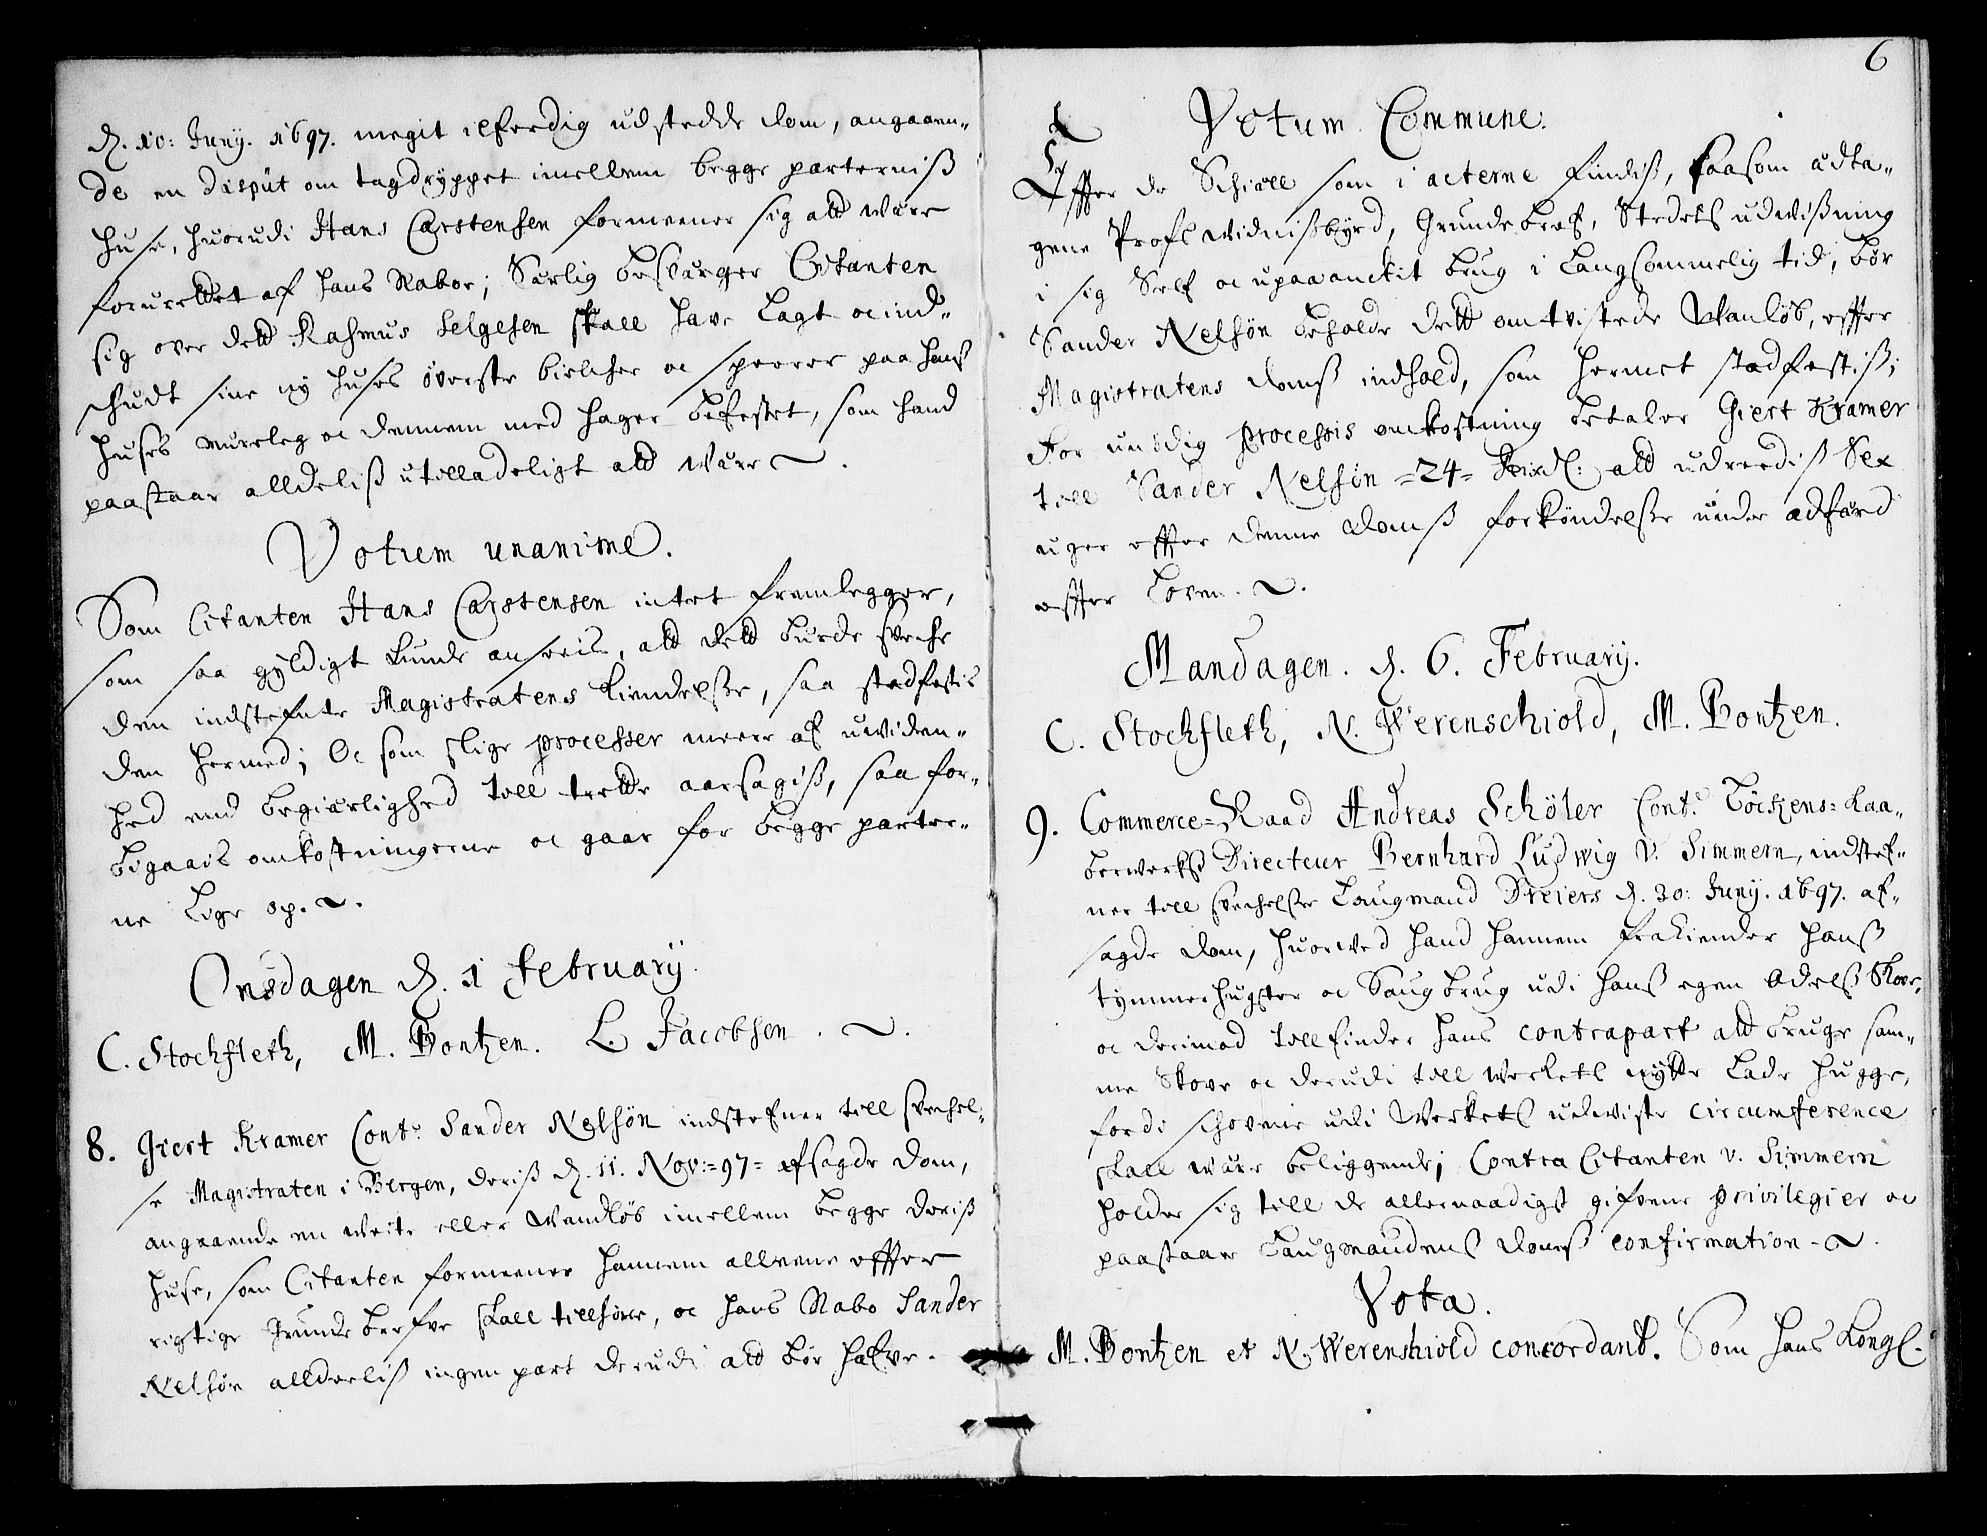 d. 10: Junij. 1697. megit ilferdig udstedde dom, angaaen-
de en disput om tagdryppet imellem begge parternis
huse, huorudi Hans Carstensen formeener sig att være
forurettet af hans Naboe; Særlig besværger Citanten
sig over dett Rasmus Helgesen skall have lagt oc ind-
schudt sine ny huses överste bielcher oc sperrer paa hans
huses muurleg oc dennem med hager befestet, som hand
paastaar alldelis utilladeligt att være.
Votum unanime.
Som Citanten Hans Carstensen intet fremlegger,
som saa gyldigt kunde ansees, att dett burde svche
den indstefnte Magistratens kiendelse, saa stadfestis
den hermed; Oc som slige processer meere af uviden-
hed end begiærlighed till trette aarsagis, saa for-
bigaais omkostningerne oc gaar for begge parter-
ne lige op.
Onsdagen d. 1 February.
C. Stochfleth, M. Bontzen. L. Jacobsen.
8. Giert Kramer Cont: Sander Nelsön indstefner till svechel-
se Magistraten i Bergen, deris d. 11. Nov:=97= afsagde dom,
angaaende en Veite eller Vandløb imellem begge deris
huse, som Citanten formeener hannem alleene effter
rigtige Grundebrefve skall tillhøre, oc hans Nabo Sander
Nelsön alldeelis ingen part derudi att bör hafve.
6
Votum Commune.
Effter de Schiæll som i acterne findis, saasom udta-
gene Profs Vidnisbyrd, Grundebref, Stedets udvisning
i sig Self oc upaaanckit brug i langsommelig tid, bör
Sander Nelsön beholde dett omtvistede Vanløb, effter
Magistratens doms indhold, som hermet stadfestis;
For unödig processis omkostning betaler Giert Kramer
till Sander Nelsön =24= Rixd: att udreedis Sex
uger effter denne doms forkyndelse under adfærd
effter Loven.
Mandagen. d. 6. February.
C. Stochfleth, N. Werenschiold, M. Bontzen.
9. Commerce=Raad Andreas Schöler Cont: Löckens=Kaa-
berverks Directeur Bernhard Ludwig v. Simmern, indstef-
ner till svechelse Laugmand Dreiers d. 30: Junij. 1697. af-
sagde dom, huorved hand hannem frakiender hans
tymmerhugster oc Saugbrug udi hans egen Odels Skove,
oc derimod tillfinder hans contrapart att bruge sam-
me Skove oc derudi till Verkets nytte lade hugge,
fordi schovene udi Verkets udviste circumference
skall være beliggende; Contra Citanten v. Simmern
holder sig till de allernaadigst gifvene privilegier oc
paastaar Laugmandens doms confirmation.
Vota.
M. Bontzen et N. Werenskiold concordant. Som hans Kongl.